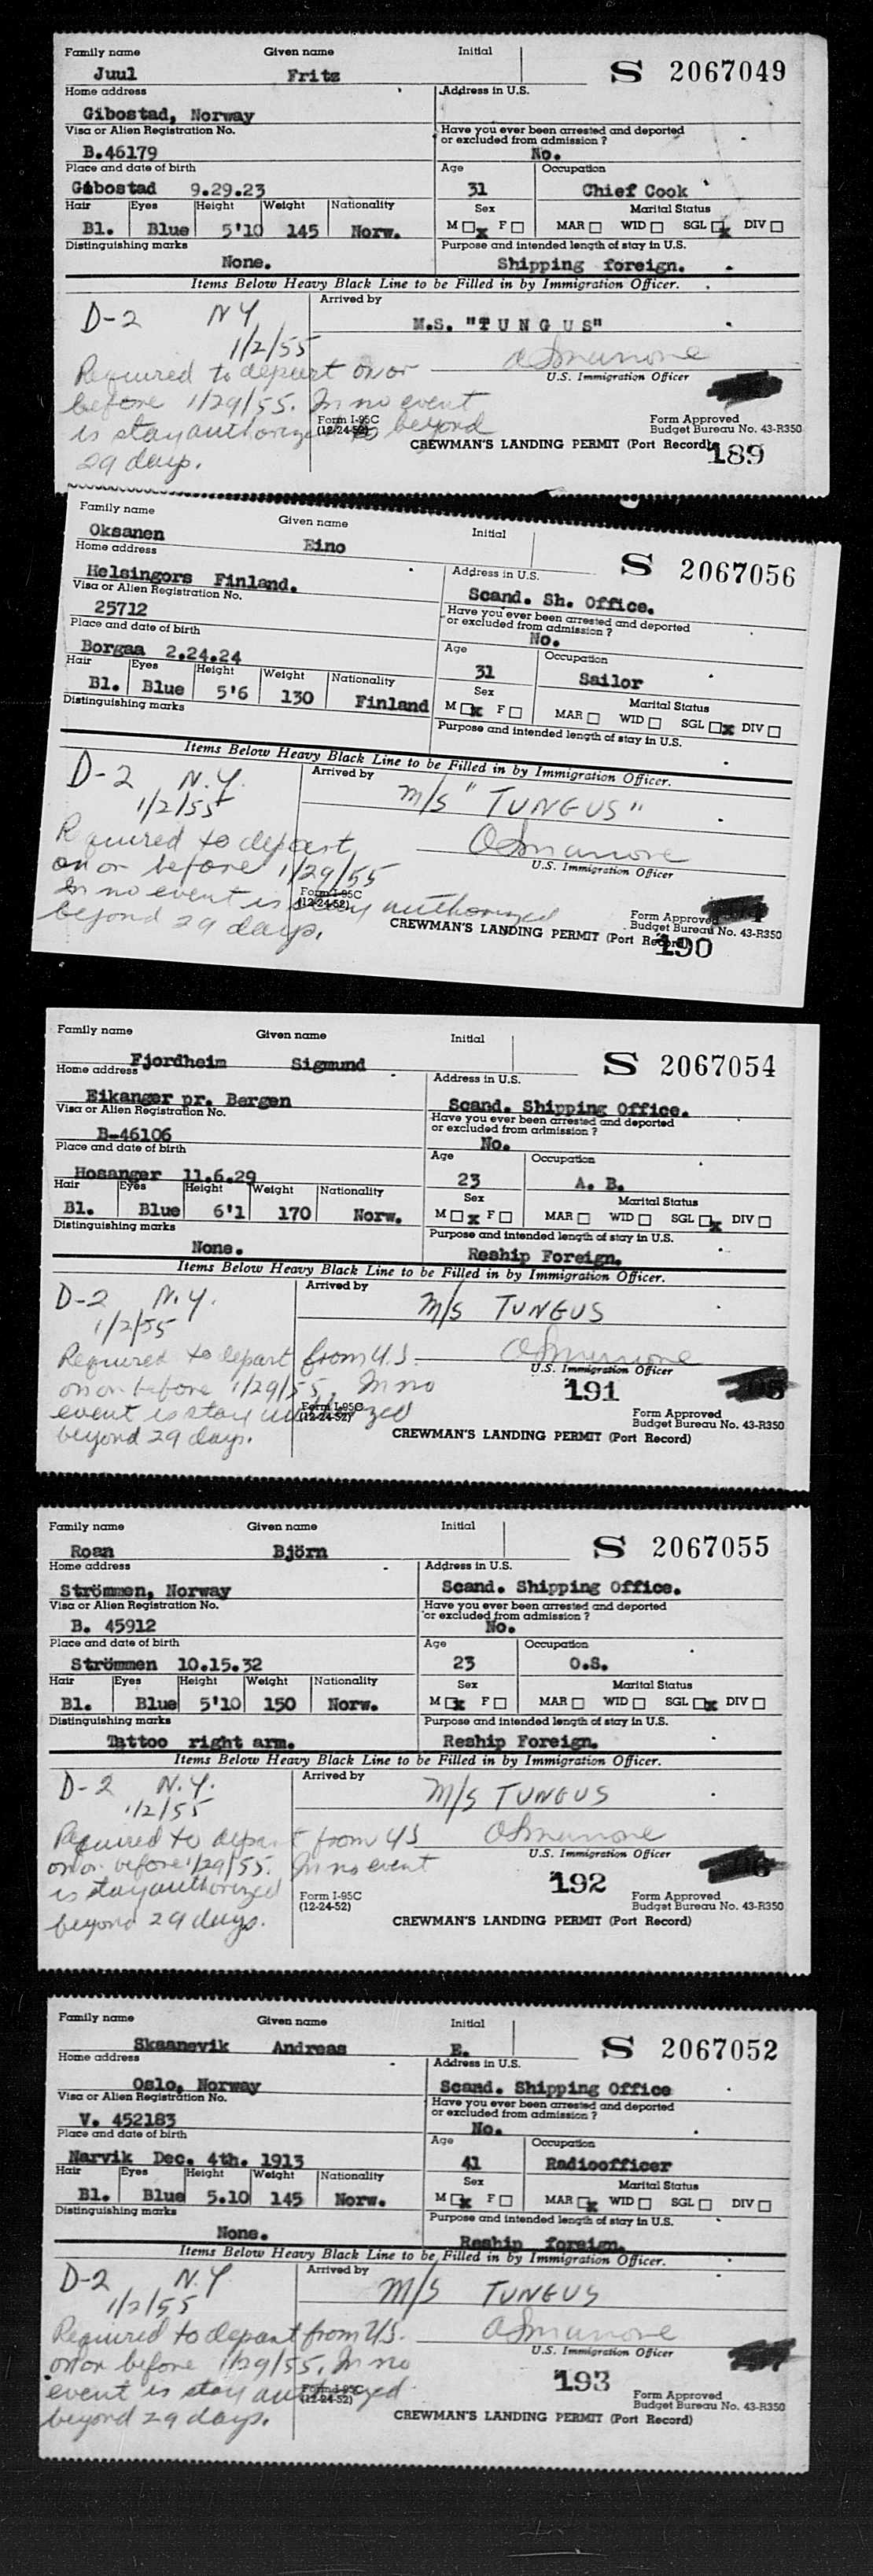 Family name Given name Initial
Juul Fritz S 2067049
Home address Address in U.S.
Gibostad, Norway
Visa or Alien Registration No. Have you ever been arrested and deported or excluded from admission ?
B.46179 No.
Place and date of birth Age Occupation
Gibostad 9.29.23 31 Chief Cook
Hair Eyes Height Weight Nationality Sex Marital Status
Bl. Blue 5'10 145 Norw. M x F MAR WID SGL x DIV
Distinguishing marks Purpose and intended length of stay in U.S.
None. Shipping foreign.
Items Below Heavy Black Line to be Filled in by Immigration Officer.
D-2 NY Arrived by
1/2/55 M.S. "T U N G U S"
Required to depart on or
before 1/29/55. In no event U.S. Immigration Officer
is stay authorized beyond Form I-95C (12-24-52) Form Approved Budget Bureau No. 43-R350
29 days. CREWMAN'S LANDING PERMIT (Port Record) 189
Family name Given name Initial
Oksanen Eino S 2067056
Home address Address in U.S.
Helsingors Finland. Scand. Sh. Office.
Visa or Alien Registration No. Have you ever been arrested and deported or excluded from admission ?
25712 No.
Place and date of birth Age Occupation
Borgaa 2.24.24 31 Sailor
Hair Eyes Height Weight Nationality Sex Marital Status
Bl. Blue 5'6 130 Finland M x F MAR WID SGL x DIV
Distinguishing marks Purpose and intended length of stay in U.S.
Items Below Heavy Black Line to be Filled in by Immigration Officer.
D-2 N.Y. Arrived by
1/2/55 M/S "TUNGUS"
Required to depart
on or before 1/29/55 U.S. Immigration Officer
In no event is stay authorized Form I-95C (12-24-52) Form Approved Budget Bureau No. 43-R350
beyond 29 days. CREWMAN'S LANDING PERMIT (Port Record) 190
Family name Given name Initial
Fjordheim Sigmund S 2067054
Home address Address in U.S.
Eikanger pr. Bergen Scand. Shipping Office.
Visa or Alien Registration No. Have you ever been arrested and deported or excluded from admission ?
B-46106 No.
Place and date of birth Age Occupation
Hosanger 11.6.29 23 A. B.
Hair Eyes Height Weight Nationality Sex Marital Status
Bl. Blue 6'1 170 Norw. M x F MAR WID SGL x DIV
Distinguishing marks Purpose and intended length of stay in U.S.
None. Reship Foreign.
Items Below Heavy Black Line to be Filled in by Immigration Officer.
D-2 N.Y. Arrived by
1/2/55 M/S TUNGUS
Required to depart from U.S.
on or before 1/29/55. In no U.S. Immigration Officer
event is stay authorized 191 Form I-95C (12-24-52) Form Approved Budget Bureau No. 43-R350
beyond 29 days. CREWMAN'S LANDING PERMIT (Port Record)
Family name Given name Initial
Roan Björn S 2067055
Home address Address in U.S.
Strömmen, Norway Scand. Shipping Office.
Visa or Alien Registration No. Have you ever been arrested and deported or excluded from admission ?
B. 45912 No.
Place and date of birth Age Occupation
Strömmen 10.15.32 23 O.S.
Hair Eyes Height Weight Nationality Sex Marital Status
Bl. Blue 5'10 150 Norw. M x F MAR WID SGL x DIV
Distinguishing marks Purpose and intended length of stay in U.S.
Tattoo right arm. Reship Foreign.
Items Below Heavy Black Line to be Filled in by Immigration Officer.
D-2 N.Y. Arrived by
1/2/55 M/S TUNGUS
Required to depart from US
on or before 1/29/55. In no event U.S. Immigration Officer
is stay authorized 192 Form I-95C (12-24-52) Form Approved Budget Bureau No. 43-R350
beyond 29 days. CREWMAN'S LANDING PERMIT (Port Record)
Family name Given name Initial
Skaanevik Andreas E. S 2067052
Home address Address in U.S.
Oslo, Norway Scand. Shipping Office
Visa or Alien Registration No. Have you ever been arrested and deported or excluded from admission ?
V. 452183 No.
Place and date of birth Age Occupation
Narvik Dec. 4th. 1913 41 Radioofficer
Hair Eyes Height Weight Nationality Sex Marital Status
Bl. Blue 5.10 145 Norw. M x F MAR x WID SGL DIV
Distinguishing marks Purpose and intended length of stay in U.S.
None. Reship foreign.
Items Below Heavy Black Line to be Filled in by Immigration Officer.
D-2 N.Y. Arrived by
1/2/55 M/S TUNGUS
Required to depart from U.S.
on or before 1/29/55. In no U.S. Immigration Officer
event is stay authorized 193 Form I-95C (12-24-52) Form Approved Budget Bureau No. 43-R350
beyond 29 days. CREWMAN'S LANDING PERMIT (Port Record)